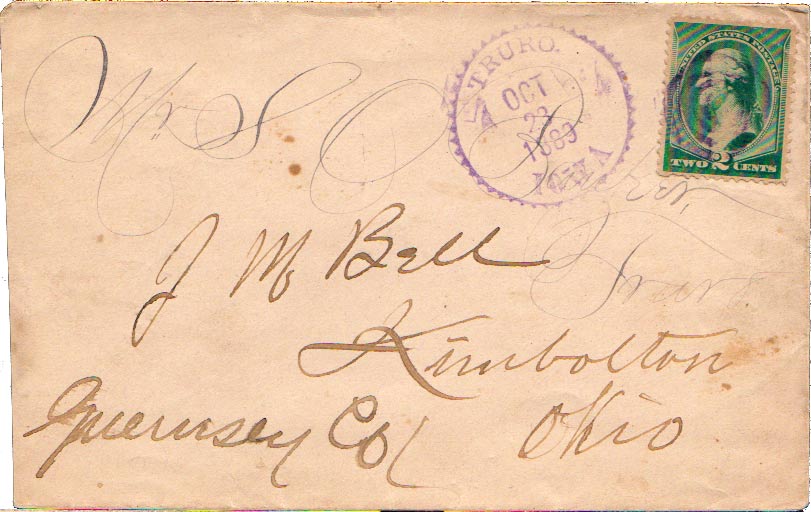 UNITED STATES POSTAGE
TWO 2 CENTS
TRURO.
OCT
22
1889
IOWA
Mr S O
Truro
J M Bell
Kimbolton
Guernsey Co
Ohio